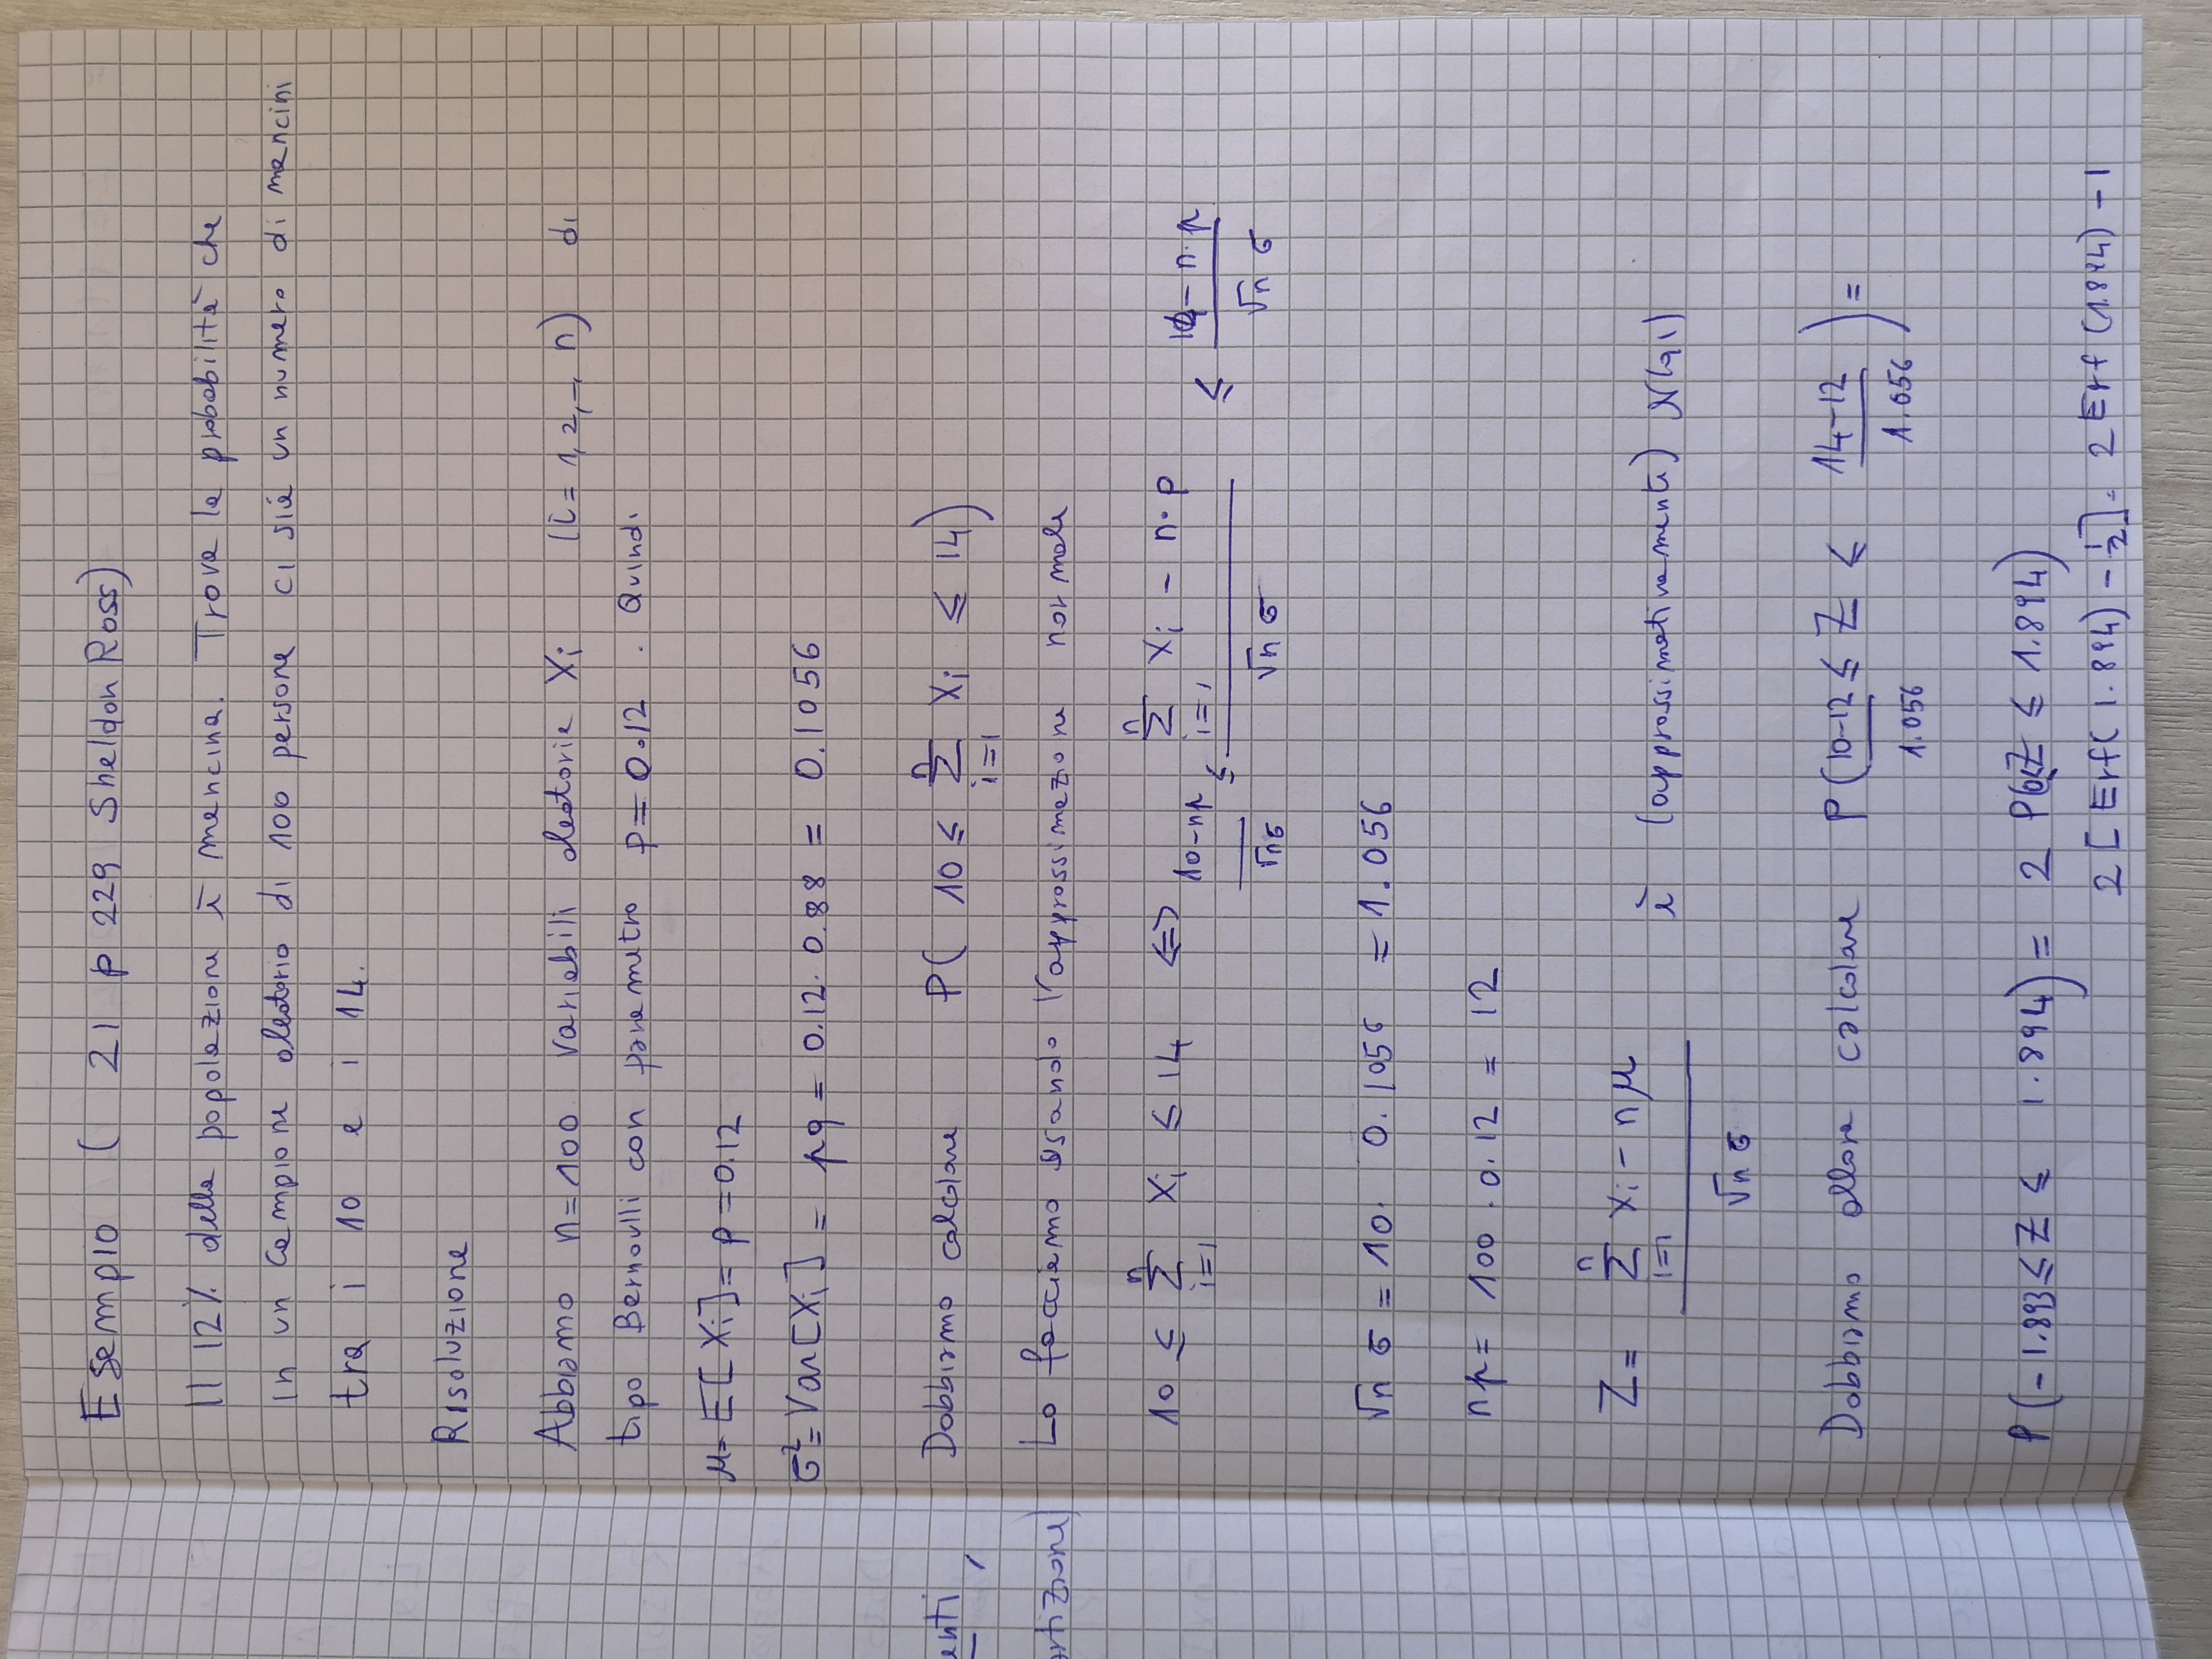 Esempio ( 21 p 229 Sheldon Ross)
Il 12% della popolazione è mancina. Trova la probabilità che
in un campione aleatorio di 100 persone ci sia un numero di mancini
tra i 10 e i 14.
Risoluzione
Abbiamo n=100 variabili aleatorie Xi (i = 1, 2, -, n) di
tipo Bernoulli con parametro p = 0.12 . Quindi
μ = E[Xi] = p = 0.12
σ² = Var[Xi] = pq = 0.12 · 0.88 = 0.1056
enti,
Dobbiamo calcolare P( 10 ≤ Σ_{i=1}^{n} Xi ≤ 14)
rtizione)
Lo facciamo usando l'approssimazione normale
10 ≤ Σ_{i=1}^{n} Xi ≤ 14 ⇔ (10-np)/(√n σ) ≤ (Σ_{i=1}^{n} Xi - n·p)/(√n σ) ≤ (14 - n·p)/(√n σ)
√n σ = 10 · 0.1056 = 1.056
np = 100 · 0.12 = 12
Z = (Σ_{i=1}^{n} Xi - nμ)/(√n σ) è (approssimativamente) N(0,1)
Dobbiamo allora calcolare P( (10-12)/1.056 ≤ Z ≤ (14-12)/1.056 ) =
P(-1.893 ≤ Z ≤ 1.894) = 2 P(0≤Z ≤ 1.894)
2 [Erf(1.894) - 1/2] = 2 Erf (1.894) - 1